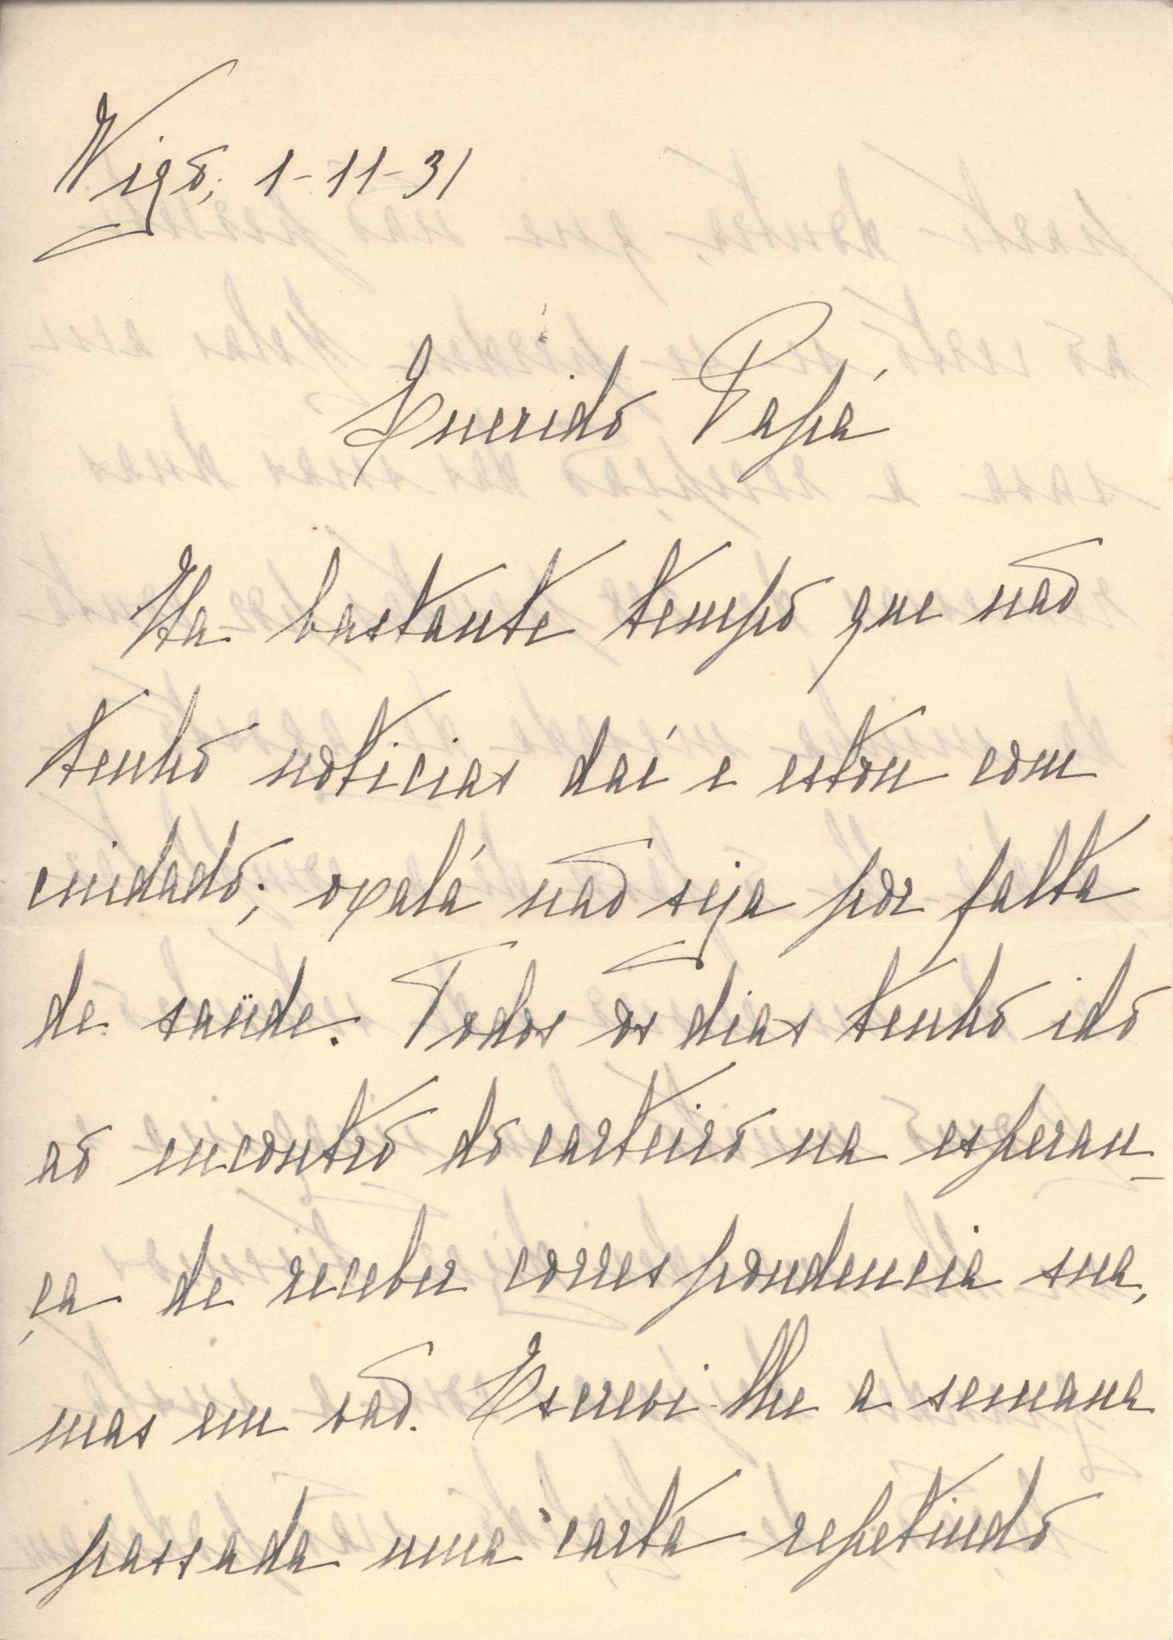 Vigo, 1-11-31
Querido Papá
Ha bastante tempo que não
tenho noticias daí e estou com
cuidado; oxalá não seja por falta
de saüde. Todos os dias tenho ido
ao encontro do carteiro na esperan-
ça de receber correspondencia sua,
mas em vão. Escrevi-lhe a semana
passada uma carta repetindo